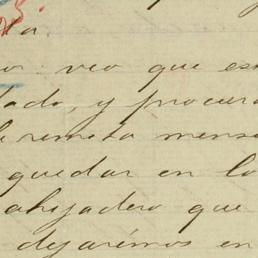 to
o veo que es
dado, y procura
le remita mens
quedar en lo
ahijadero que
dejarémos en